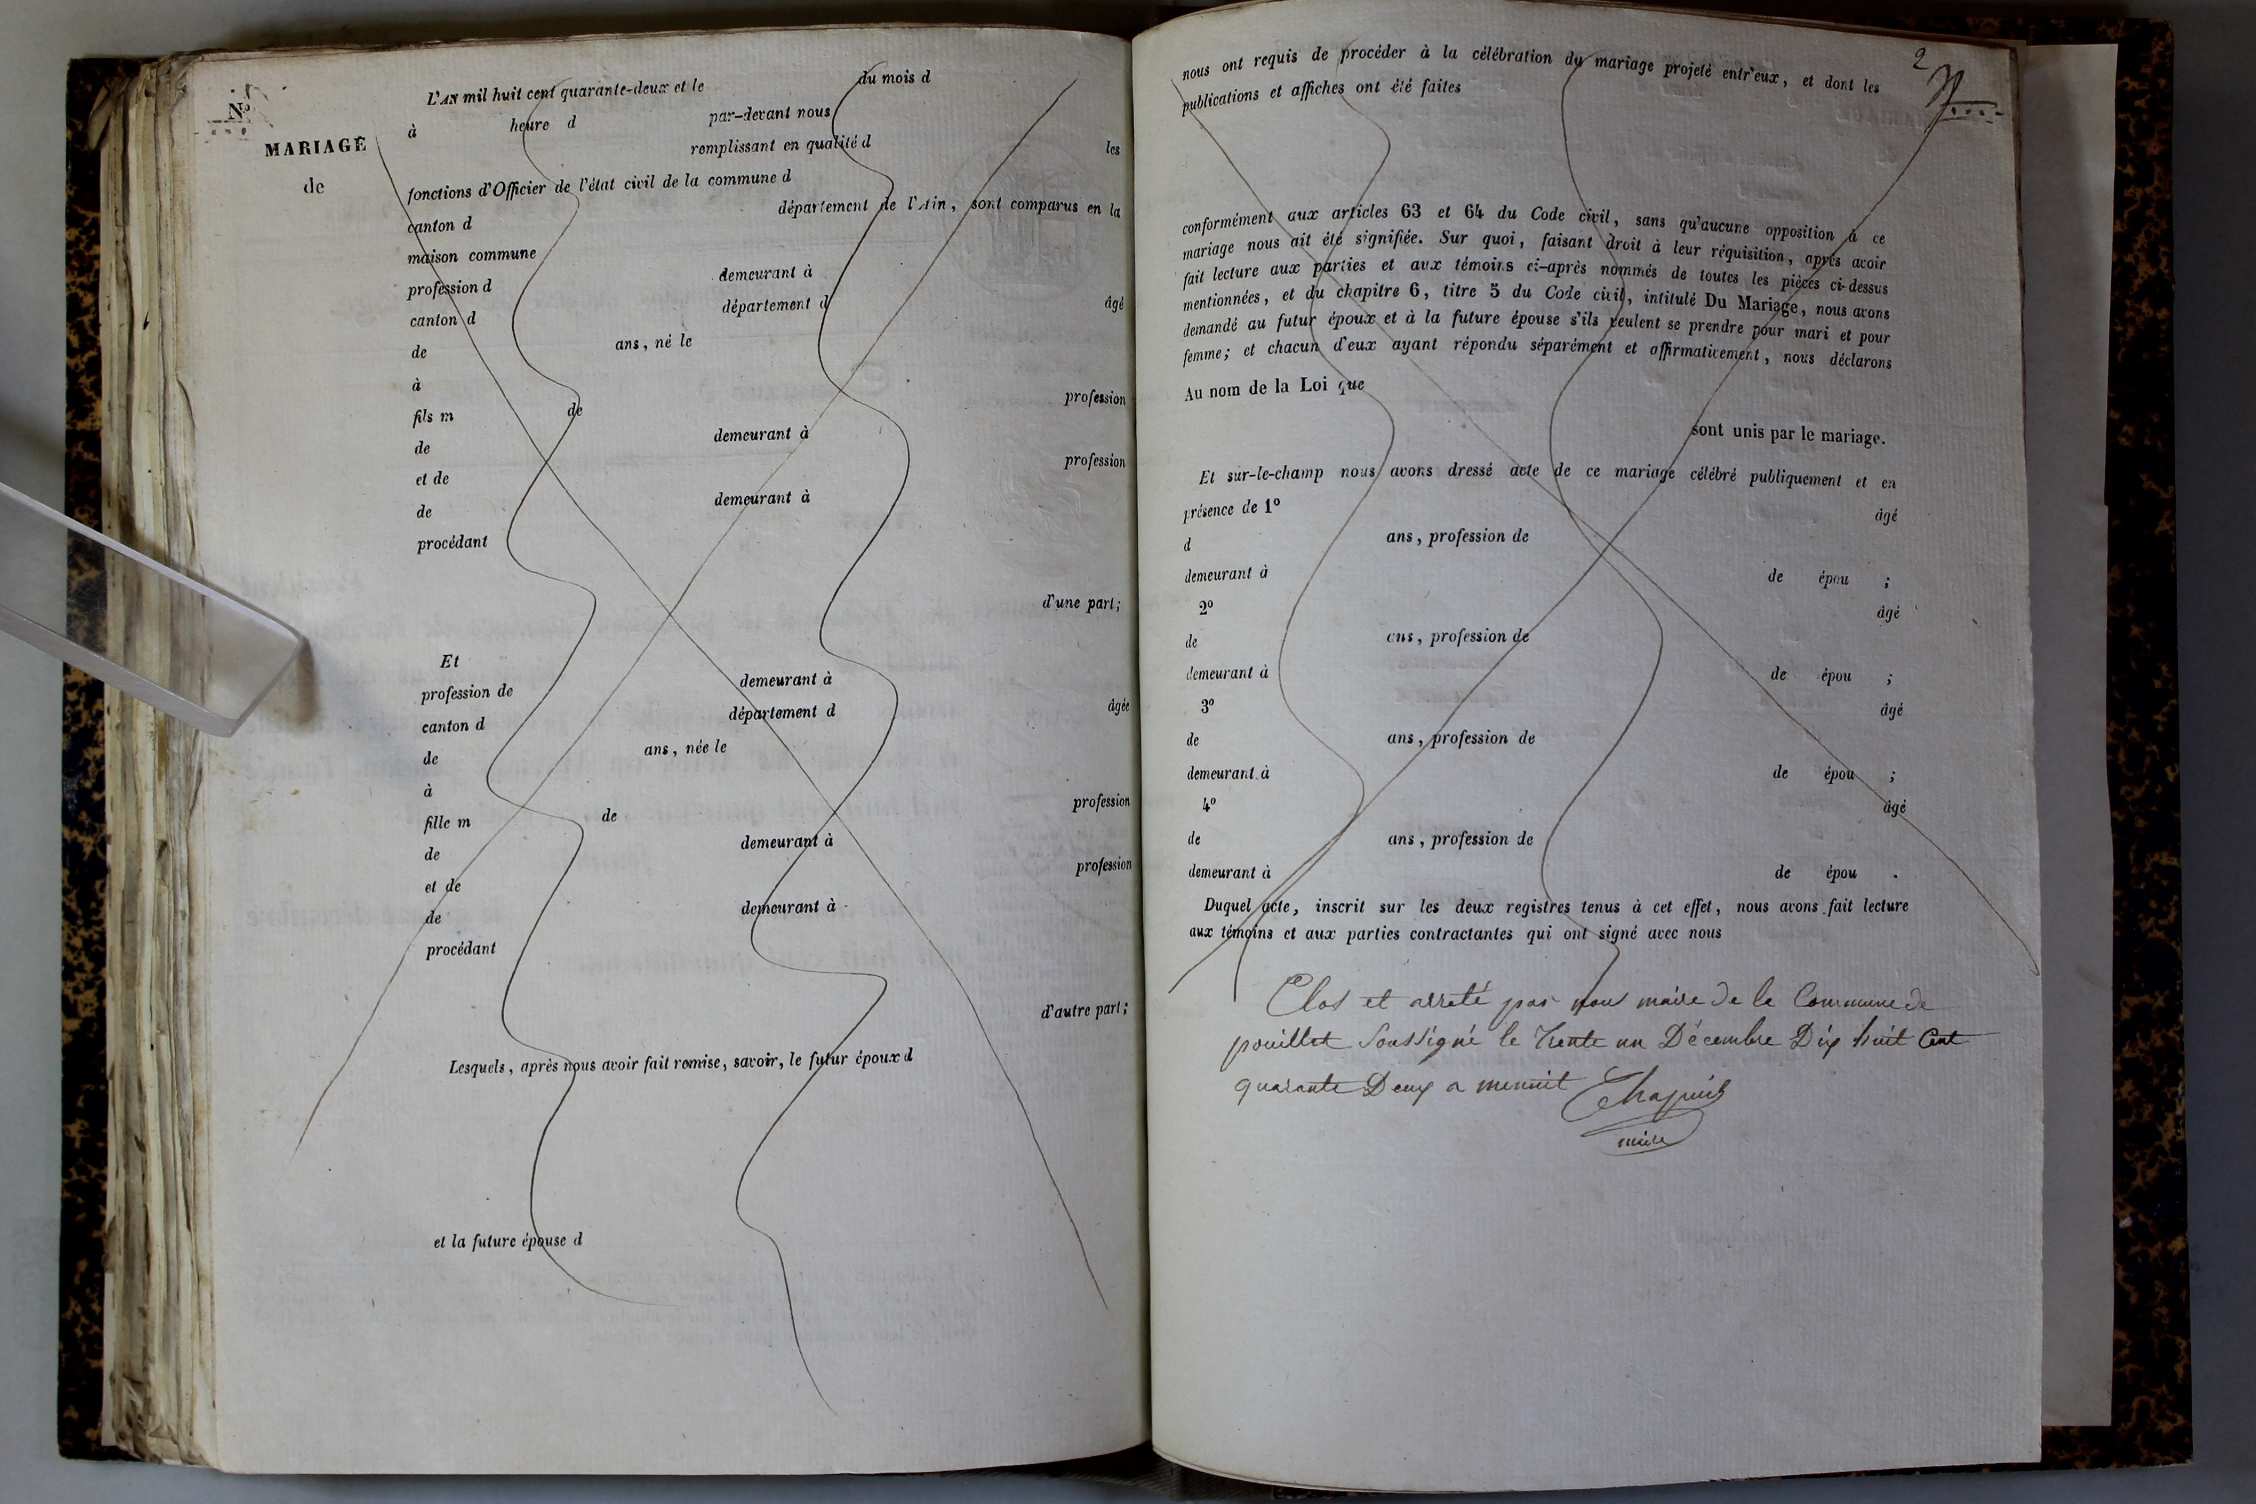 N.º
MARIAGE
de
L'AN mil huit cent quarante-deux et le du mois d
à heure d par-devant nous
remplissant en qualité d les
fonctions d'Officier de l'état civil de la commune d
canton d département de l'Ain, sont comparus en la
maison commune
profession d demeurant à
canton d département d âgé
de ans, né le
à
fils m de profession
de demeurant à
et de profession
de demeurant à
procédant
d'une part;
Et
profession de demeurant à
canton d département d âgée
de ans, née le
à
fille m de profession
de demeurant à
et de profession
de demeurant à
procédant
d'autre part;
Lesquels, après nous avoir fait remise, savoir, le futur époux d
et la future épouse d
2
nous ont requis de procéder à la célébration du mariage projeté entr'eux, et dont les
publications et affiches ont été faites
conformément aux articles 63 et 64 du Code civil, sans qu'aucune opposition à ce
mariage nous ait été signifiée. Sur quoi, faisant droit à leur réquisition, après avoir
fait lecture aux parties et aux témoins ci-après nommés de toutes les pièces ci-dessus
mentionnées, et du chapitre 6, titre 5 du Code civil, intitulé Du Mariage, nous avons
demandé au futur époux et à la future épouse s'ils veulent se prendre pour mari et pour
femme; et chacun d'eux ayant répondu séparément et affirmativement, nous déclarons
Au nom de la Loi que
sont unis par le mariage.
Et sur-le-champ nous avons dressé acte de ce mariage célébré publiquement et en
présence de 1º âgé
d ans, profession de
demeurant à de épou ;
2º âgé
de ans, profession de
demeurant à de épou ;
3º âgé
de ans, profession de
demeurant à de épou ;
4º âgé
de ans, profession de
demeurant à de épou .
Duquel acte, inscrit sur les deux registres tenus à cet effet, nous avons fait lecture
aux témoins et aux parties contractantes qui ont signé avec nous
Clos et arreté par nous maire de la Commune de
pouillat Soussigné le Trente un Décembre Dix huit Cent
quarante Deux a menuit Chapuis
maire